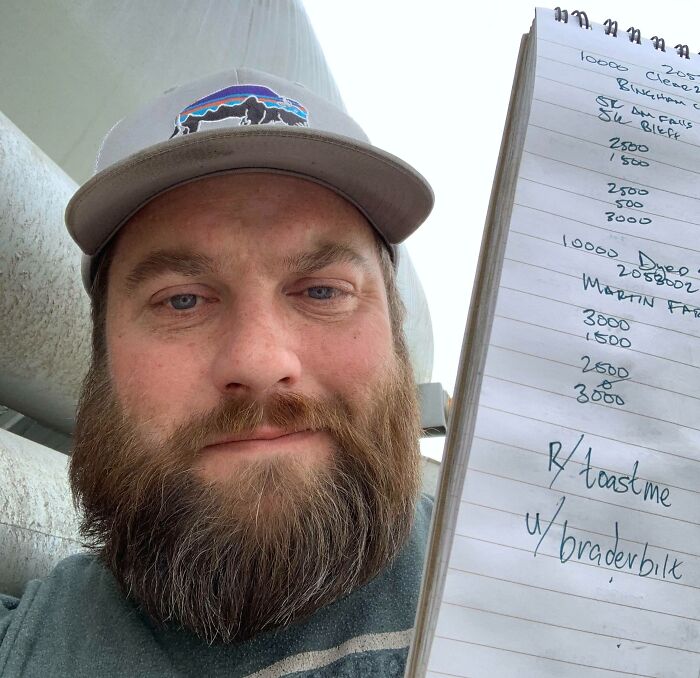 10000 205
Clear
BINGHAM
SR AM FALLS
SU Bluff
2500
1500
2500
500
3000
10000 Dyed
2058002
MARTIN FAR
3000
1500
2500
0
3000
R/toastme
u/braderbilt